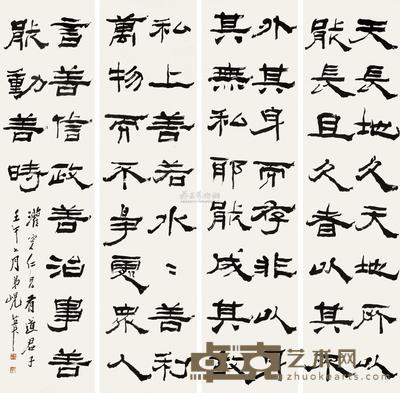 天長地久天地所以
能長且久者以其不
外其身而存非以
其無私耶能成其
私上善若水〻善利
萬物而不爭處眾人
言善信政善治事善
能動善時
仁兄有道君子
壬午二月弟峴
艺术网